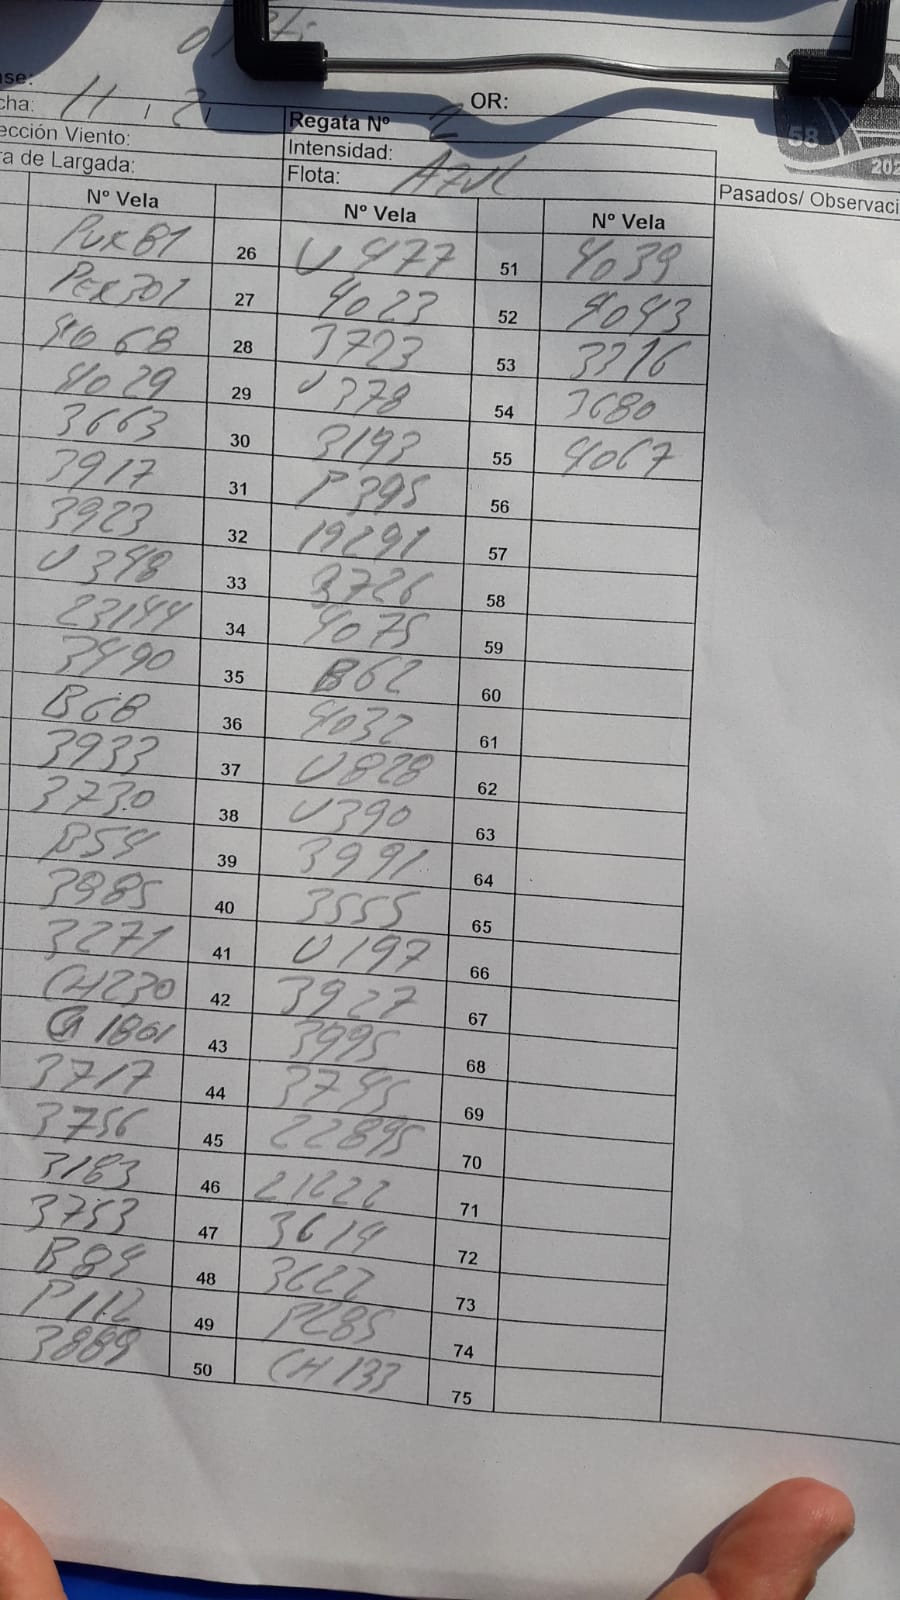 Opti
ase:
cha: 11 / 2 /
OR:
Regata Nº 2
ección Viento:
Intensidad:
ra de Largada:
Flota: AZUL
58
202
Pasados/ Observaci
Nº Vela Nº Vela Nº Vela
26 U 477 51 4039
PER301 27 4023 52 4043
4068 28 3723 53 3316
4029 29 U 378 54 3680
3663 30 3193 55 4067
3917 31 P 395 56
3923 32 19291 57
U 348 33 3726 58
23144 34 4075 59
3490 35 B62 60
B68 36 4032 61
3933 37 U828 62
3730 38 U390 63
B54 39 3991 64
3985 40 3555 65
3271 41 U 197 66
CH230 42 3927 67
1861 43 3995 68
3717 44 3745 69
3756 45 22895 70
3183 46 21222 71
3753 47 3614 72
B84 48 3622 73
P112 49 P285 74
3889 50 CH 133 75